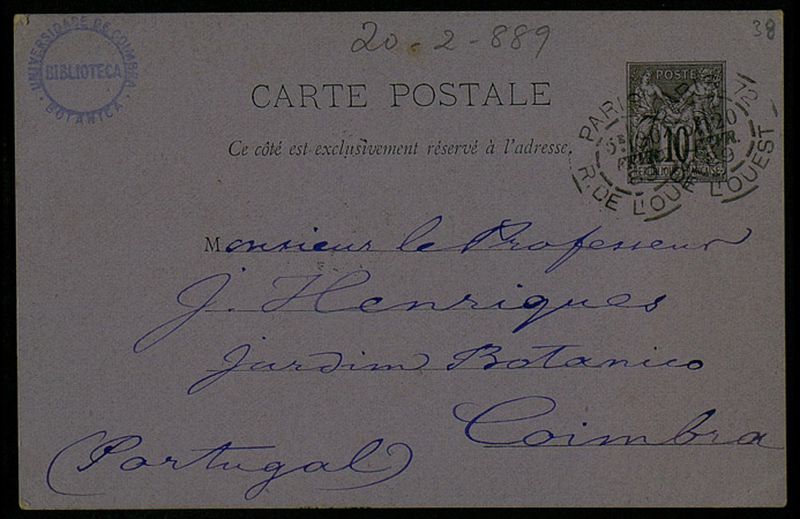 20-2-889
38
UNIVERSIDADE DE COIMBRA
BIBLIOTECA
BOTANICA
CARTE POSTALE
Ce côté est exclusivement réservé à l'adresse.
POSTE
10
PARIS
R. DE L'OUEST
20
Monsieur le Professeur
J. Henriques
Jardim Botanico
Coimbra
(Portugal)